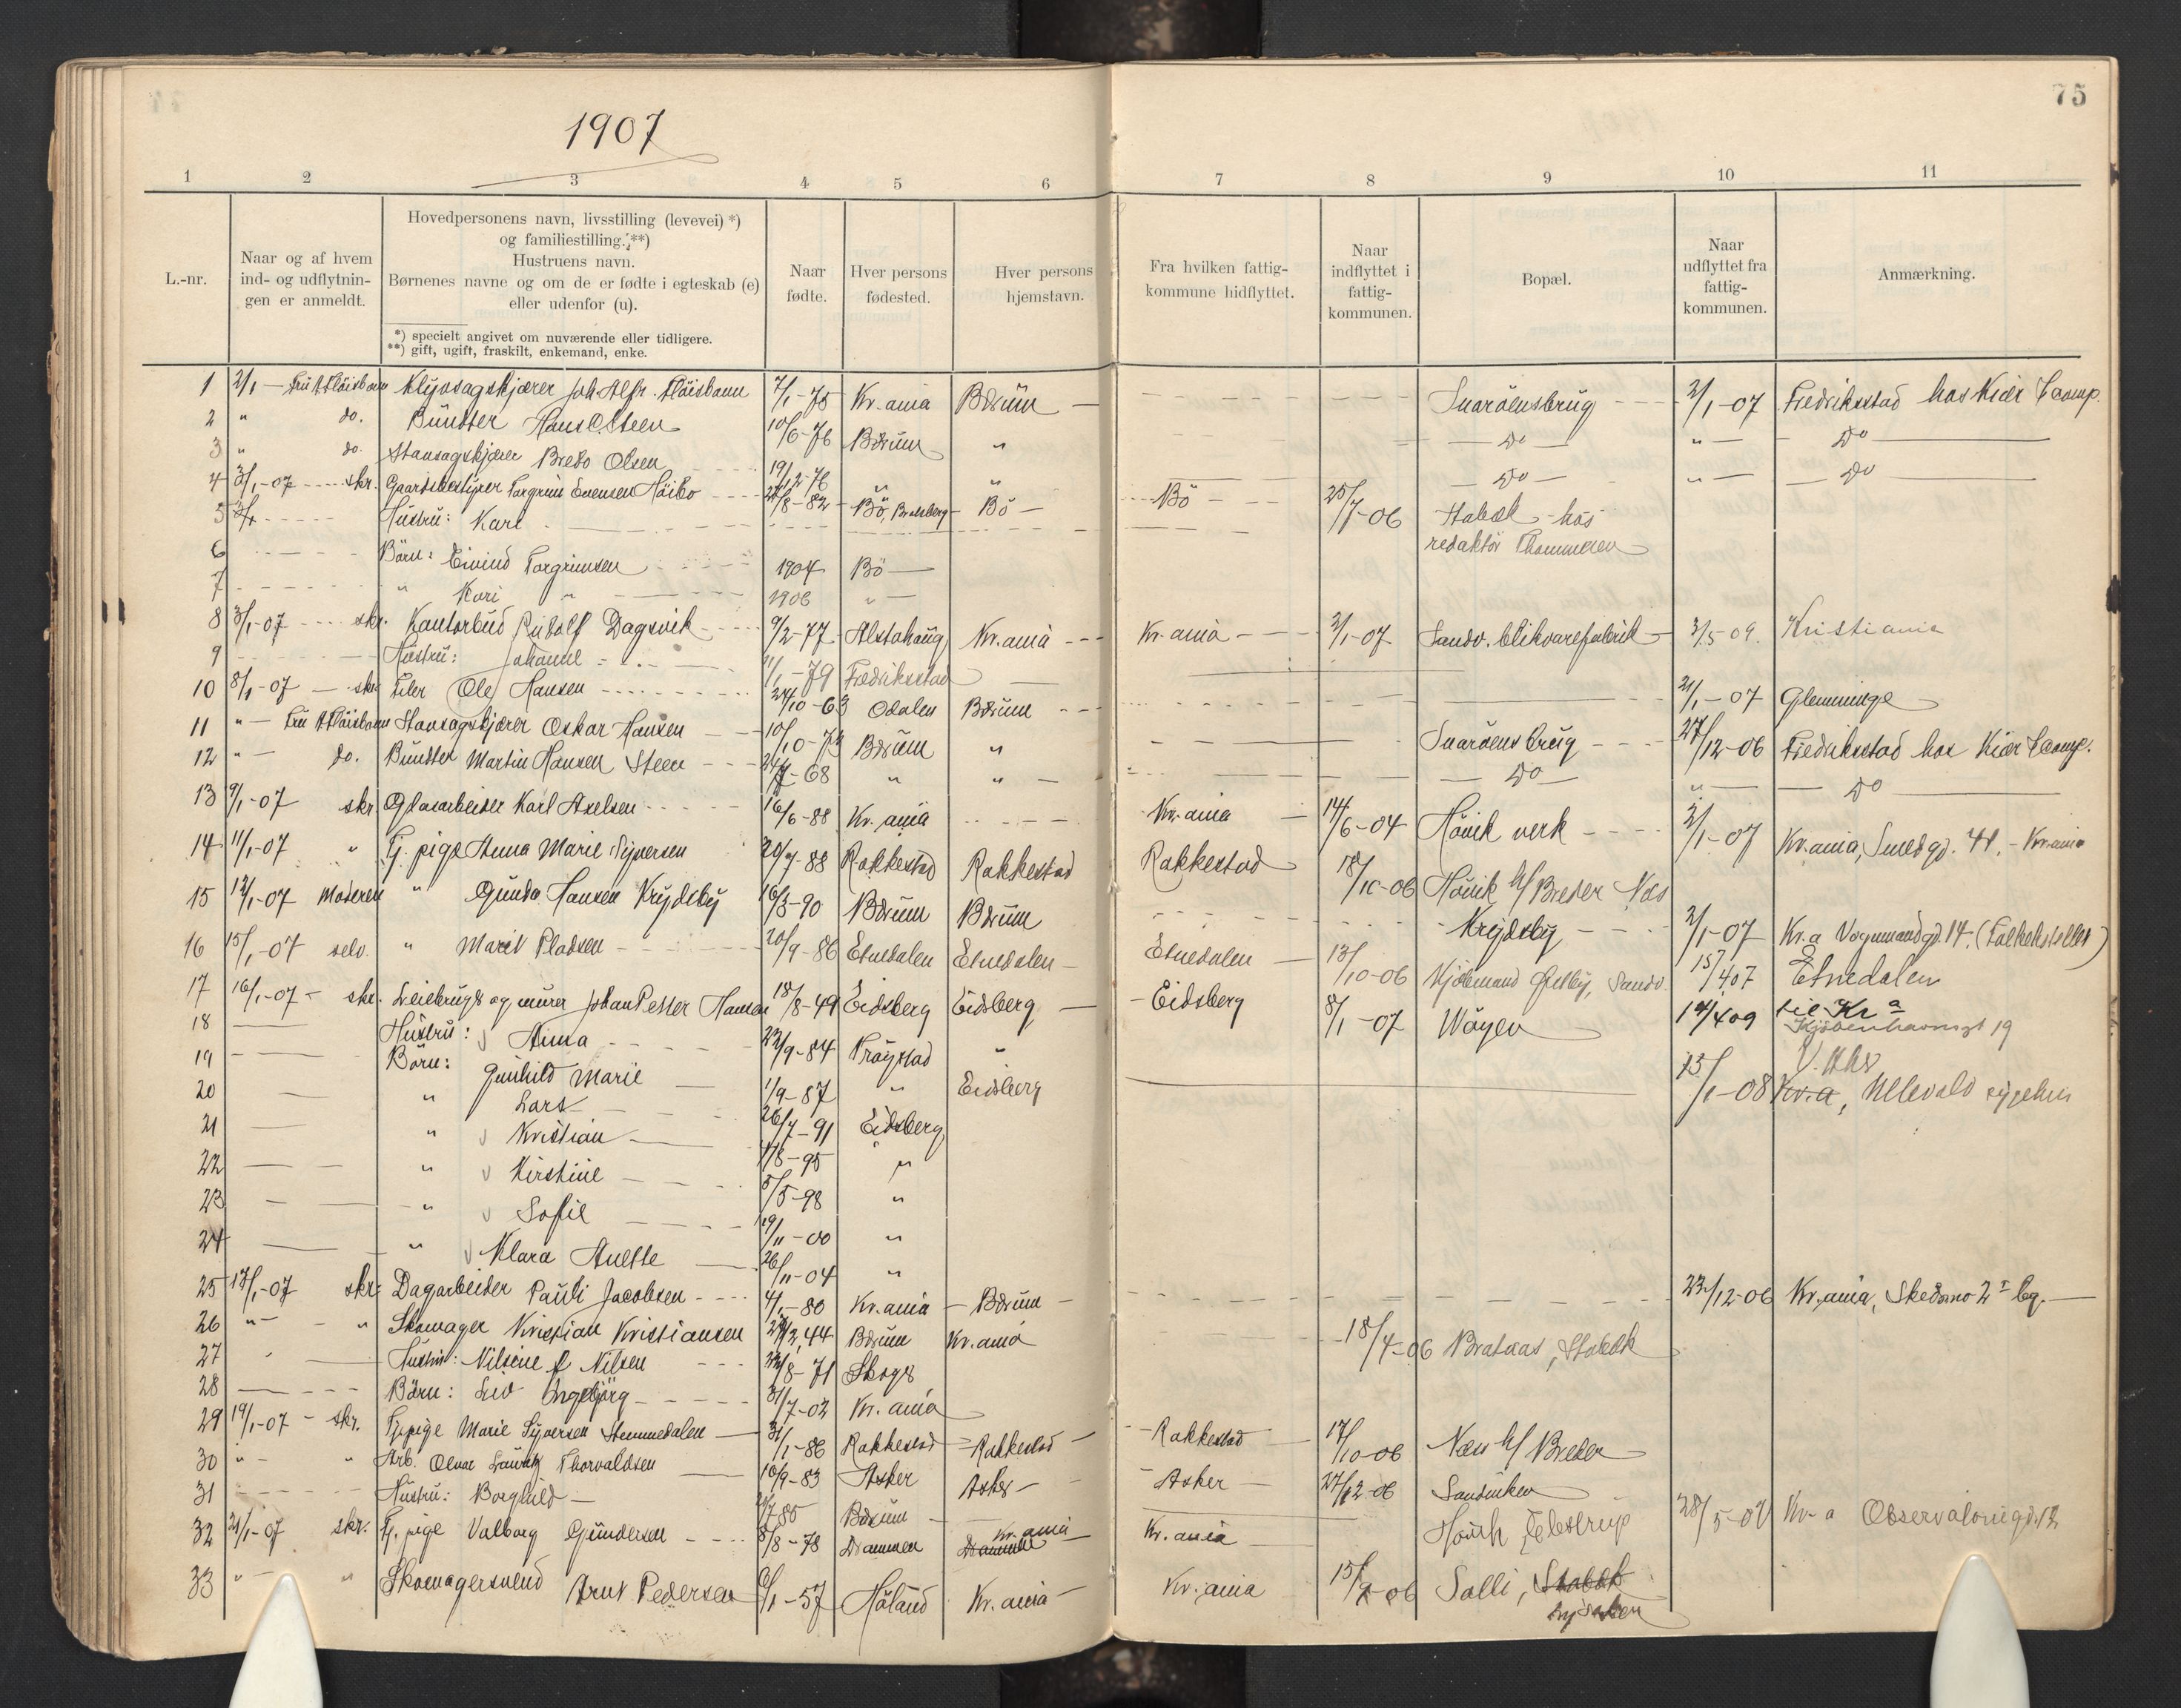 75
1907
1 2 3 4 5 6 7 8 9 10 11
L.-nr.
Naar og af hvem ind- og udflytnin- gen er anmeldt.
Hovedpersonens navn, livsstilling (levevei) *)
og familiestilling. **)
Hustruens navn.
Børnenes navne og om de er fødte i egteskab (e)
eller udenfor (u).
*) specielt angivet om nuværende eller tidligere.
**) gift, ugift, fraskilt, enkemand, enke.
Naar fødte.
Hver persons fødested.
Hver persons hjemstavn.
Fra hvilken fattig- kommune hidflyttet.
Naar indflyttet i fattig- kommunen.
Bopæl.
Naar udflyttet fra fattig- kommunen.
Anmærkning.
1 2/1 — Fru A Fløisbonn Klypsagskjærer Joh. Alfr. Fløisbonn 7/1-75 Kr.ania Bærum — Snarøensbrug 2/1-07 Fredriksstad hos Kiær & Comp.
2 " do. Bundter Hans C. Steen 10/6-76 Bærum " — Do — " — Do —
3 " do. Stavsagskjærer Bredo Olsen 19/12-76 " " — Do — " — Do —
4 3/1-07 skr. Gaardsbestyrer Torgrim Evensen Høibo 28/8-82 Bö, Bratsberg Bö — Bö 25/7-06 Stabæk hos
5 Hustru: Kari redaktør Thommesen
6 Börn: Eivind Torgrimsen 1904 Bö —
7 " Kari " 1906 " —
8 3/1-07 skr. Kontorbud Rudolf Dagsvik 9/2-77 Alstahaug Kr.ania Kr.ania 2/1-07 Sandv. blikvarefabrik 3/5-09. Kristiania
9 Hustru: Johanne 11/1-79 Fredriksstad
10 8/1-07 skr. Filer Ole Hansen 24/10-63 Odalen Bærum 21/1-07 Glemminge
11 " — Fru A Fløisbonn Stavsagskjærer Oskar Hansen 10/10-73 Bærum " Snarøens brug 27/12-06 Fredriksstad hos Kiær & Comp.
12 " — do. Bundter Martin Hansen Steen -68 " " — Do — " — Do —
13 9/1-07 skr Glasarbeider Karl Axelsen 16/6-88 Kr.ania Kr.ania 14/6-04 Høvik verk 2/1-07 Kr.ania, Smedgd. 41. - Kr.ania
14 11/1-07 " Tj. pige Anna Marie Syversen 20/7-88 Rakkestad Rakkestad Rakkestad 18/10-06 Høvik h/ Breder Næs
15 12/1-07 Moderen " Gunda Hansen Krydsby 16/3-90 Bærum Bærum Krydsby 2/1-07 Kr.a Vognmandgd. 14.
16 15/1-07 selv. " Marit Pladsen 20/9-86 Etnedalen Etnedalen Etnedalen 13/10-06 Kjøbmand Østby, Sandv. 15/4 07 Etnedalen
17 16/1-07 skr. Leiebruger og murer Johan Petter Hansen 18/8-49 Eidsberg Eidsberg Eidsberg 8/1-07 Wøyen 14/4 09 til Kr a
18 Hustru: Anna 22/9-54 Trøgstad " Kjøbenhavnsgt 19
19 Börn: Gunhild Marie 1/9-87 " Eidsberg 13/1-08 Kr.a, Ullevold sygehus
20 " Lars 26/7-91 Eidsberg
21 " Kristian /8-95 "
22 " Kirstine 5/5-98 "
23 " Sofie 19/11-00 "
24 " Klara Anette 26/11-04 "
25 17/1-07 skr. Dagarbeider Pauli Jacobsen 4/1-80 Kr.ania Bærum 22/12-06 Kr.ania, Skedsmo
26 " " Skomager Kristian Kristiansen 44 Bærum Kr.ania 18/4-06 Brataas, Stabæk
27 Hustru: Nilsine f. Nilsen /8-71 Skoger
28 Börn: Liv Ingebjørg 31/7-02 Kr.ania
29 19/1-07 skr. Tj.pige Marie Syversen Stemmedalen 31/1-86 Rakkestad Rakkestad Rakkestad 17/10-06 Næs h/ Breder
30 " " Arb. Olnar Lauritz Thorvaldsen 10/9-83 Asker Asker Asker 27/12-06 Sandviken
31 Hustru: Borghild 85 Bærum
32 21/1-07 skr. Tj. pige Valborg Gundersen 8/8-78 Drammen Drammen Kr.ania Kr.ania Høvik, 28/5-07 Kr-a Observatoriegd. 12
33 " " Skomagersvend Arnt Pedersen 6/1-57 Høland Kr.ania Kr.ania 15/9-06 Solli, Stabæk
Lysaker